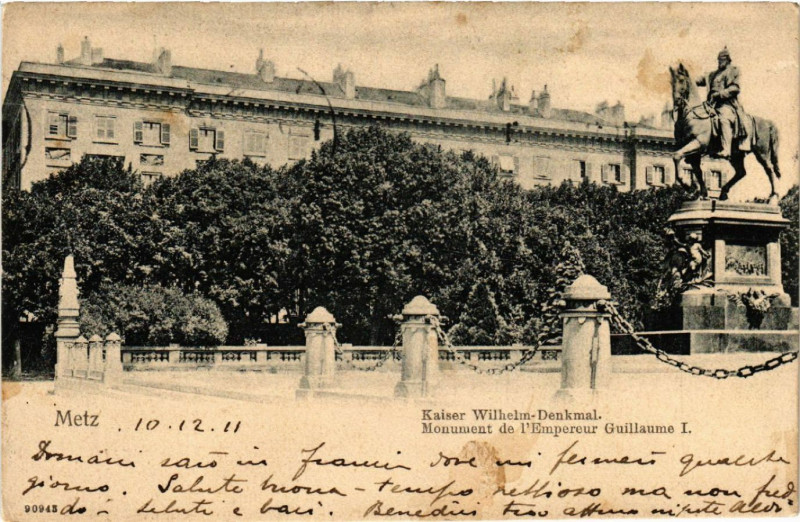 Metz . 10.12.11
Kaiser Wilhelm-Denkmal.
Monument de l'Empereur Guillaume I.
Domani sarò in Francia dove mi fermerò qualche
giorno. Salute buona - tempo nebbioso ma non fred
90945 do - salute e baci.